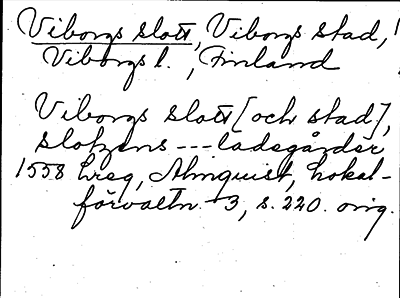 Viborgs slott, Viborgs stad,
Viborgs l., Finland
Viborgs slott [och stad],
slotzens --- ladegårder
1558 hreg, Almquist, Lokal-
förvaltn. 3, s. 220. orig.